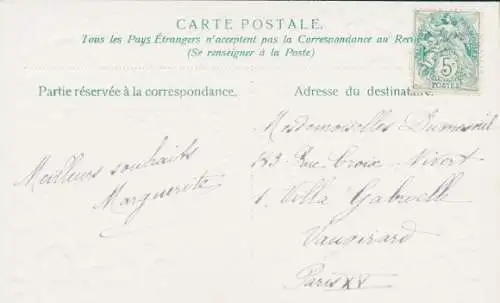 CARTE POSTALE.
Tous les Pays Étrangers n'acceptent pas la Correspondance au
(Se renseigner à la Poste)
Partie réservée à la correspondance.
Adresse du destinataire.
5
POSTES
Meilleurs souhaits
Marguerite
Mesdemoiselles Dumesnil
183 Rue Croix Nivert
1. Villa Gabrielle
Vaugirard
Paris XV